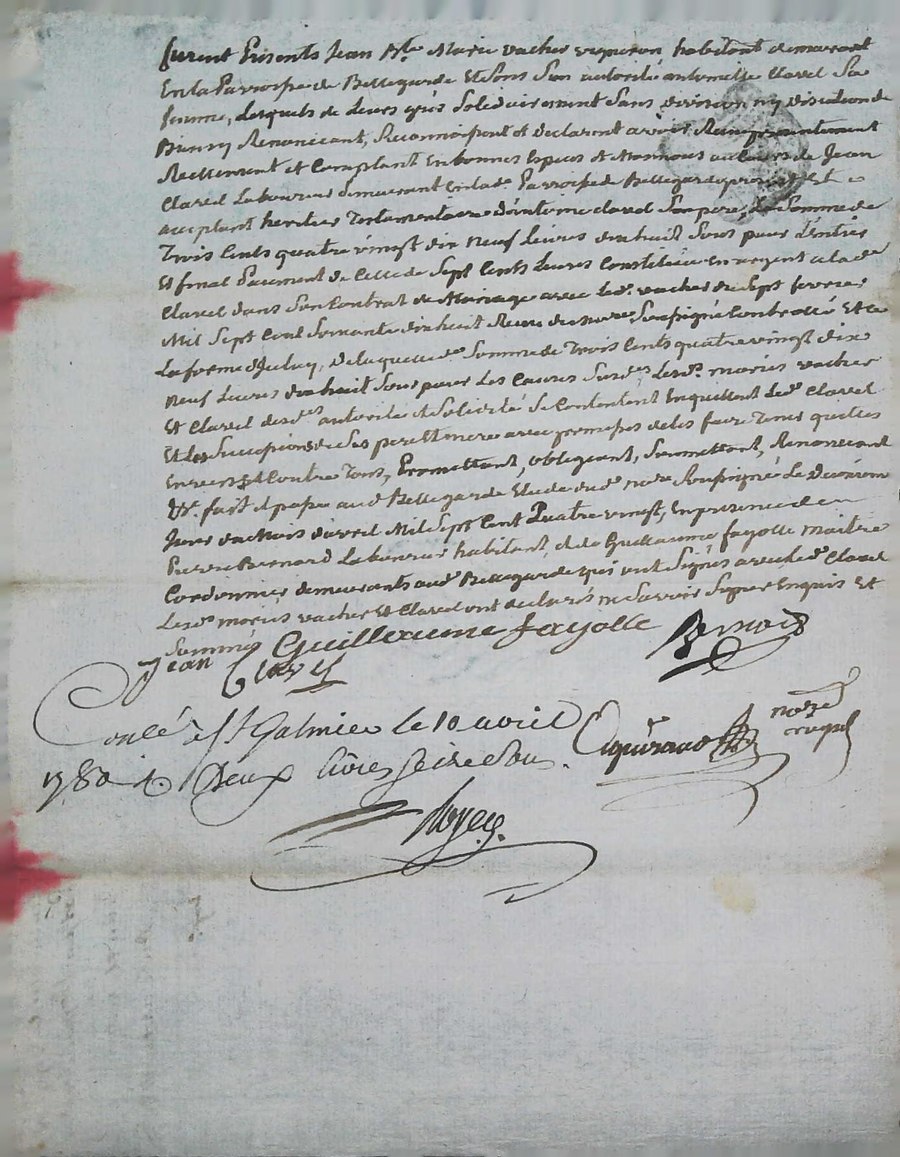 furent présents Jean Bte Marie vacher vigneron habitant demeurant
En la Parroisse de Bellegarde Et sous son autorité antoinette Clavel Sa
femme, Lesquels de Leurs grés Solidairement Sans division ny discution de
Biens y Renoncant, Reconnoissent et declarent avoir Reçu presentement
Reellement et Comptant En bonnes Especes et Monnoies au Cours de Jean
Clavel Laboureur demeurant En lade Parroisse de Bellegarde present Et
acceptant heritier Testamentaire d'antoine clavel Son pere, La Somme de
Trois Cents quatre vingt dix Neuf Livres dixhuit Sous pour d'Entier
Et final Payement de Celle de Sept Cents Livres Constituée En argent a lade
Clavel dans Son Contrat de Mariage avec led. vacher du Sept fevrier
Mil Sept Cent Soixante dixhuit Reçu du Nore Soussigné Controllé Et en
La forme d'icelluy, de laquelle de Somme de Trois Cents quatre vingt dix
Neuf Livres dixhuit Sous pour Les Causes Susdes Lesds mariés vacher
Et Clavel desdes autorité et Solidité Se Contentent En quittent Led. Clavel
Et Les Successions de Ses pere et mere avec promesse de les faire Tenir quittes
Envers Et Contre Tous, Promettant, obligeant, Soumettant, Renoncant
&c. fait et passé aud Bellegarde Etude dud. nore Soussigné Le
Jour du Mois d'avril Mil Sept Cent Quatre vingt, En presence de
Pierre Bernard Laboureur habitant, & de Guillaume fayolle maitre
Cordonnier demeurants aud. Bellegarde qui ont Signés avec led. Clavel
Lesds mariés vacher Et Clavel ont declarés ne Savoir Signer Enquis Et
Sommés Guillaume fayolle Bernard
Jean Clavel
Conlé à St Galmier le 10 avril
1780 Deux livres Seize Sous. nore royal